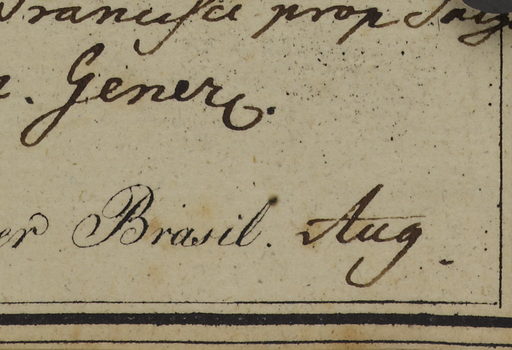 Francisci prop
Gener
er Brasil. Aug.